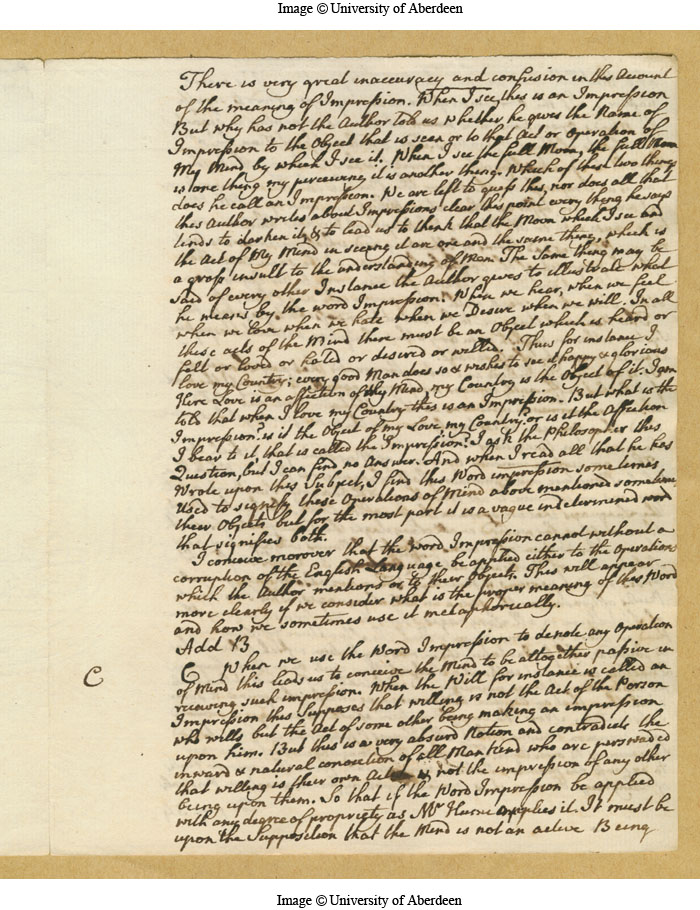 Image © University of Aberdeen
There is very great inaccuracy and confusion in this Account
of the meaning of Impression. When I see, this is an Impression
But why has not the Author told us whether he gives the Name of
Impression to the Object that is seen or to that Act or Operation of
My Mind by which I see it. When I see the full Moon, the full Moon
is one thing my perceiving it is another thing. Which of these two things
does he call an Impression. We are left to guess this, nor does all that
this Author writes about Impressions clear this point every thing he says
tends to darken it, & to lead us to think that the Moon which I see and
the Act of My Mind in seeing it are one and the same thing, which is
a gross insult to the understanding of Man. The same thing may be
said of every other Instance the Author gives to illustrate what
he means by the word Impression. When we hear, when we feel
when we love when we hate when we Desire when we will. In all
these acts of the Mind there must be an Object which is heard or
felt or loved or hated or desired or willed. Thus for instance I
love my Country; every good Man does so & wishes to see it happy & glorious
Here Love is an affection of My Mind, my Country is the Object of it; I am
told that when I love my Country this is an Impression. But what is the
Impression? is it the Object of my Love, my Country? or is it the Affection
I bear to it, that is called the Impression? I ask the Philosopher this
Question, but I can find no Answer. And when I read all that he has
Wrote upon this Subject, I find this Word impression sometimes
Used to signify these Operations of Mind above mentioned sometime
their Objects but for the most part it is a vague indetermined word
that signifies both.
I conceive morover that the word Impression cannot without a
corruption of the English Language be applied either to the Operations
which the Author mentions or to their Objects. This will appear
more clearly if we consider what is the proper meaning of this Word
and how we sometimes use it metaphorically.
Add B
C When we use the Word Impression to denote any Operation
of Mind this leads us to conceive the Mind to be altogether passive in
receiving such impression. When the Will for instance is called an
C
Impression this Supposes that willing is not the Act of the Person
who wills but the Act of some other being making an impression
upon him. But this is a very absurd Notion and contradicts the
inward & natural conviction of all Mankind who are perswaded
that willing is their own Act & not the impression of any other
being upon them. So that if the Word Impression be applied
with any degree of propriety as Mr Hume applies it. It must be
upon the Supposition that the Mind is not an active Being
Image © University of Aberdeen